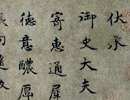 伏承
御史大夫
寄惠通犀
德意醲厚